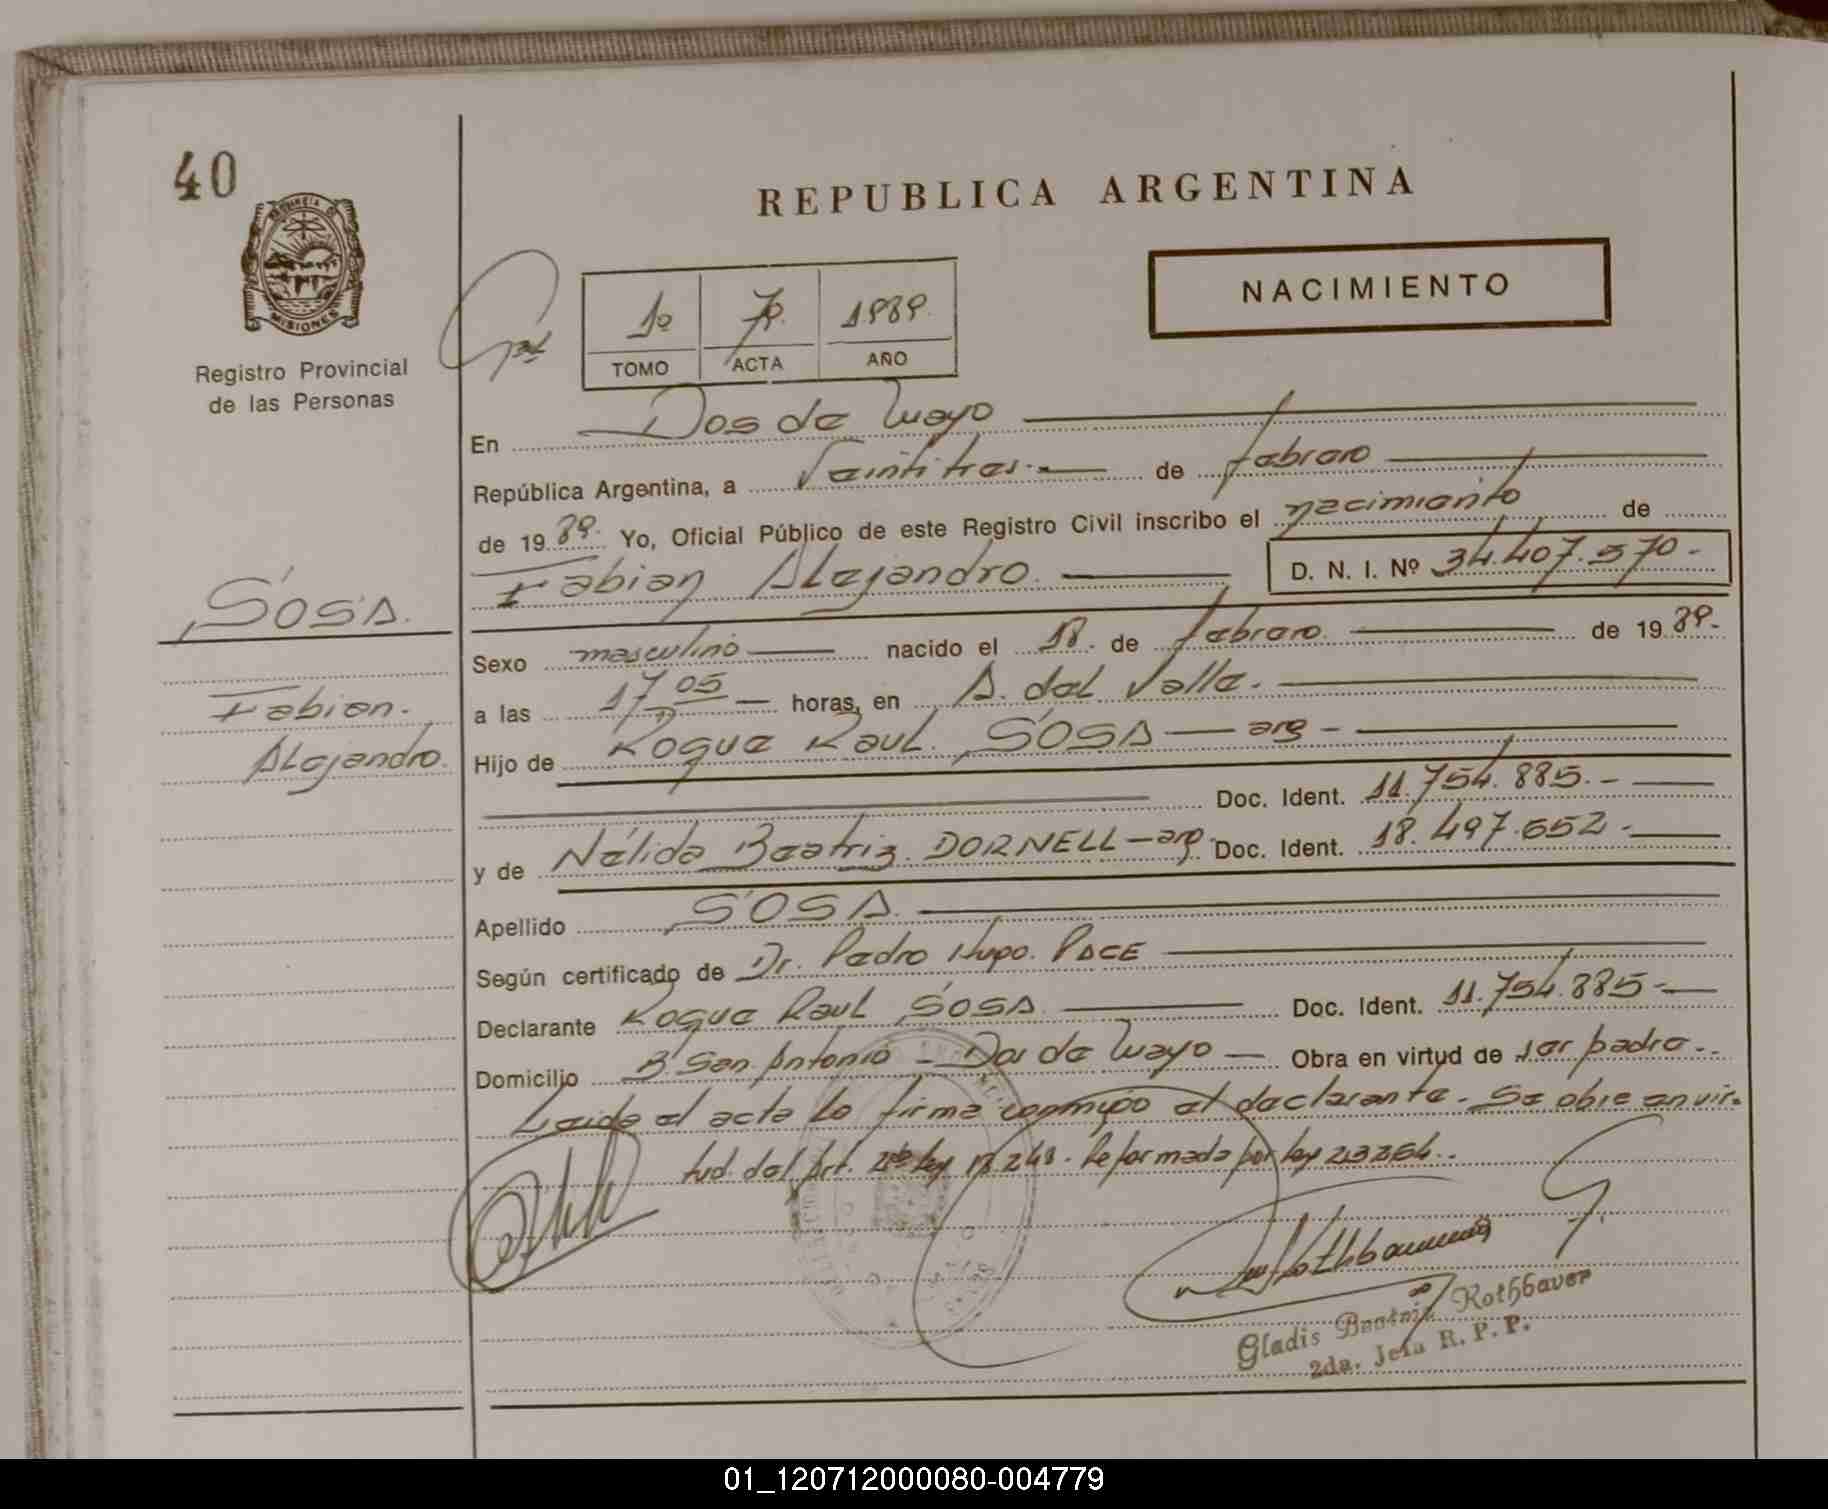 40
PROVINCIA DE
MISIONES
Registro Provincial
de las Personas
SOSA.
Fabian.
Alejandro.
REPUBLICA ARGENTINA
NACIMIENTO
1º 1989.
TOMO ACTA AÑO
En Dos de Mayo
República Argentina, a Veintitres.- de febrero
de 1989. Yo, Oficial Público de este Registro Civil inscribo el nacimiento de
Fabian Alejandro. D. N. I. Nº 34.407.570.-
Sexo masculino nacido el 18. de febrero. de 1989.-
a las 17 05 horas, en A. del Valle.
Hijo de Roque Raul. SOSA - arg -
Doc. Ident. 11.754.885.-
y de Nélida Beatriz. DORNELL - arg. Doc. Ident. 18.497.652.-
Apellido SOSA.
Según certificado de Dr. Pedro Hugo. PACE
Declarante Roque Raul SOSA Doc. Ident. 11.754.885.-
Domicilio Bº San Antonio - Dos de Mayo - Obra en virtud de ser padre.-
Leida el acta la firma conmigo el declarante. Se obre en vir-
tud del Art. Ley 18.248. Reformada por ley 23264.
Gladis Beatriz Rothbaver
2da. Jefa R. P. P.
01_120712000080-004779